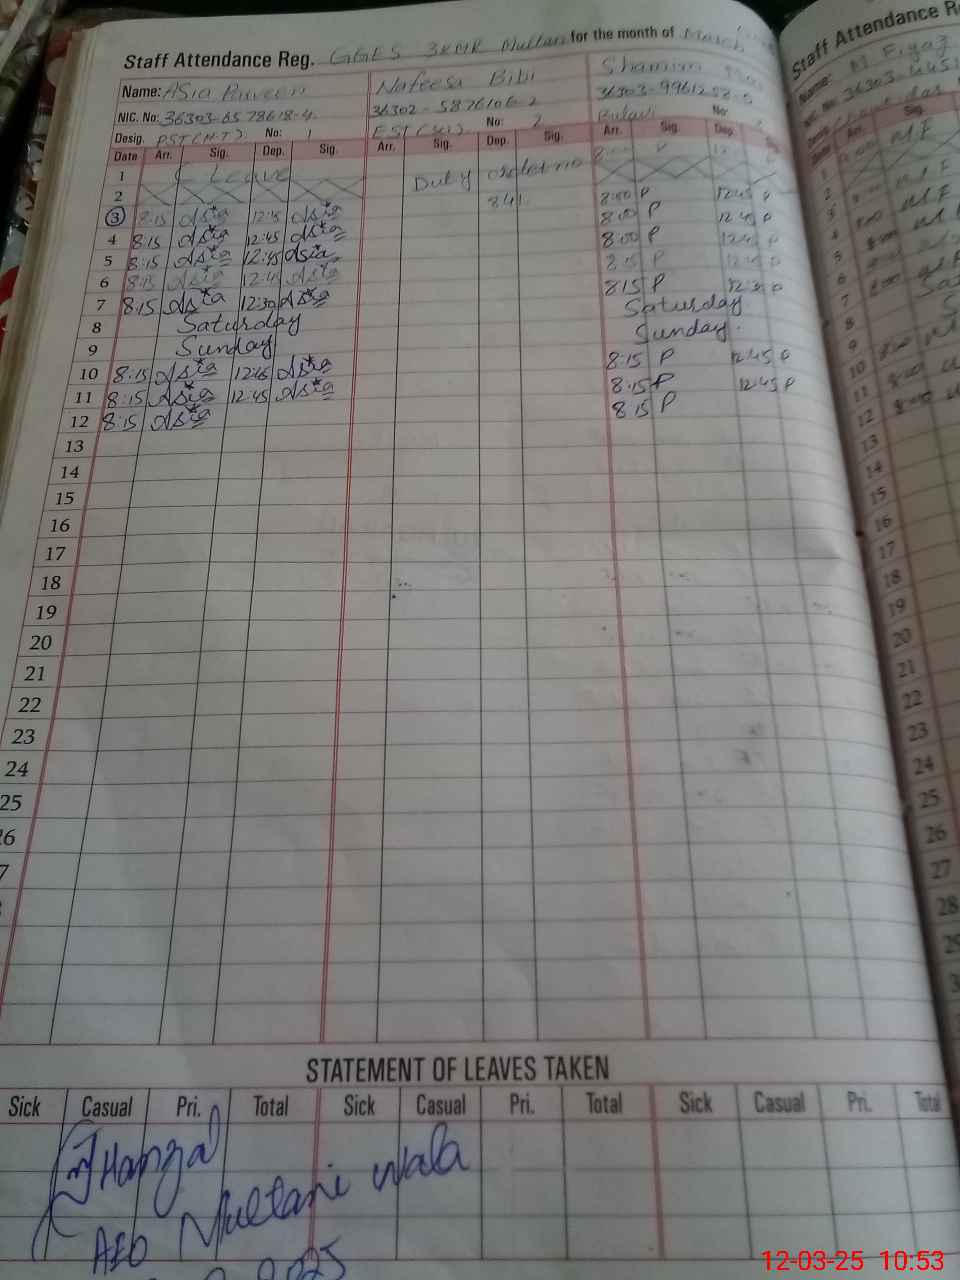 Staff Attendance Reg. GGES 3KMR Multan for the month of March
Name: Asia Parveen Nafeesa Bibi Shamim
NIC. No: 36303-6578618-4 36302-5876106-2 36303-9961258-
Desig. PST (H.T) No: 1 EST No: 2 No:
Date Arr. Sig. Dep. Sig. Arr. Sig. Dep. Sig. Arr. Sig. Dep.
1 Leave Duty order no
2 841
3 8:15 Asia 12:45 Asia 8:00 P 12:45 P
4 8:15 Asia 12:45 Asia 8:00 P 12:45 P
5 8:15 Asia 12:45 Asia 8:00 P 12:45 P
6 8:15 Asia 12:45 Asia 8:15 P 12:45 P
7 8:15 Asia 12:30 Asia 8:15 P 12:30 P
8 Saturday Saturday
9 Sunday Sunday
10 8:15 Asia 12:45 Asia 8:15 P 12:45 P
11 8:15 Asia 12:45 Asia 8:15 P 12:45 P
12 8:15 Asia 8:15 P
13
14
15
16
17
18
19
20
21
22
23
24
25
26
7
STATEMENT OF LEAVES TAKEN
Sick Casual Pri. Total Sick Casual Pri. Total Sick Casual Pri. Total
AEO Multani wala
2025
Staff Attendance
Name: M Fiyaz
NIC. No: 36303-
Arr. Sig.
1
2
3
4
5
6
7
8
9
10
11
12
13
14
15
16
17
18
19
20
21
22
23
24
25
26
27
28
12-03-25 10:53